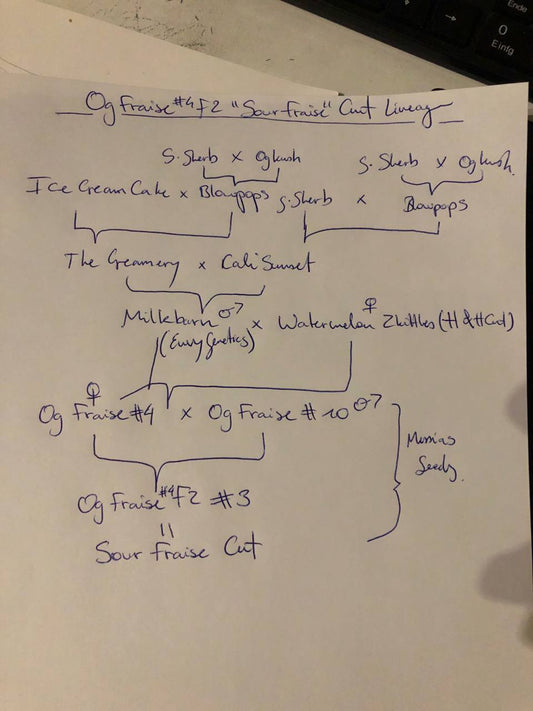 Ende
→
0
Einfg
Og Fraise #4 F2 "Sour Fraise" Cut Lineag
S. Sherb x Og kush
S. Sherb x Og kush.
Ice Cream Cake x Blowpops
S. Sherb x Blowpops
The Creamery x Cali Sunset
Milkeburn ♂ x Watermelon ♀ Zkittles (H & H Cut)
(Envy Genetics)
Og Fraise #4 ♀ x Og Fraise #10 ♂
Seeds.
Og Fraise #4 F2 #3
=
Sour Fraise Cut